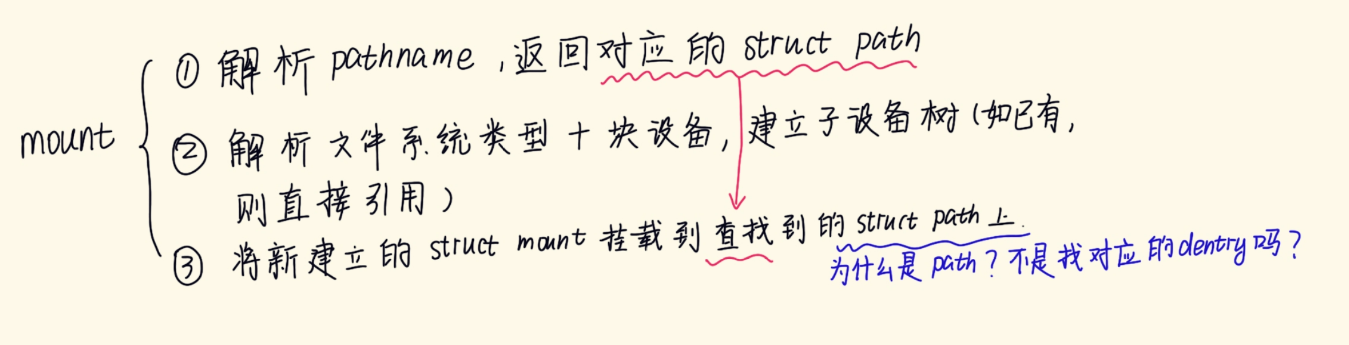 mount
① 解析 pathname ,返回对应的 struct path
② 解析文件系统类型 + 块设备, 建立子设备树 (如已有,
则直接引用)
③ 将新建立的 struct mount 挂载到查找到的 struct path 上.
为什么是 path? 不是找对应的dentry吗?